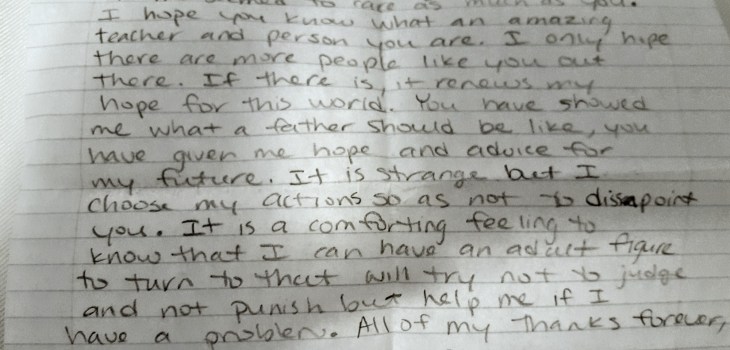 to care as much as you.
I hope you know what an amazing
teacher and person you are. I only hope
there are more people like you out
there. If there is, it renews my
hope for this world. You have showed
me what a father should be like, you
have given me hope and advice for
my future. It is strange but I
choose my actions so as not to dissapoint
you. It is a comforting feeling to
know that I can have an adult figure
to turn to that will try not to judge
and not punish but help me if I
have a problem. All of my thanks forever,